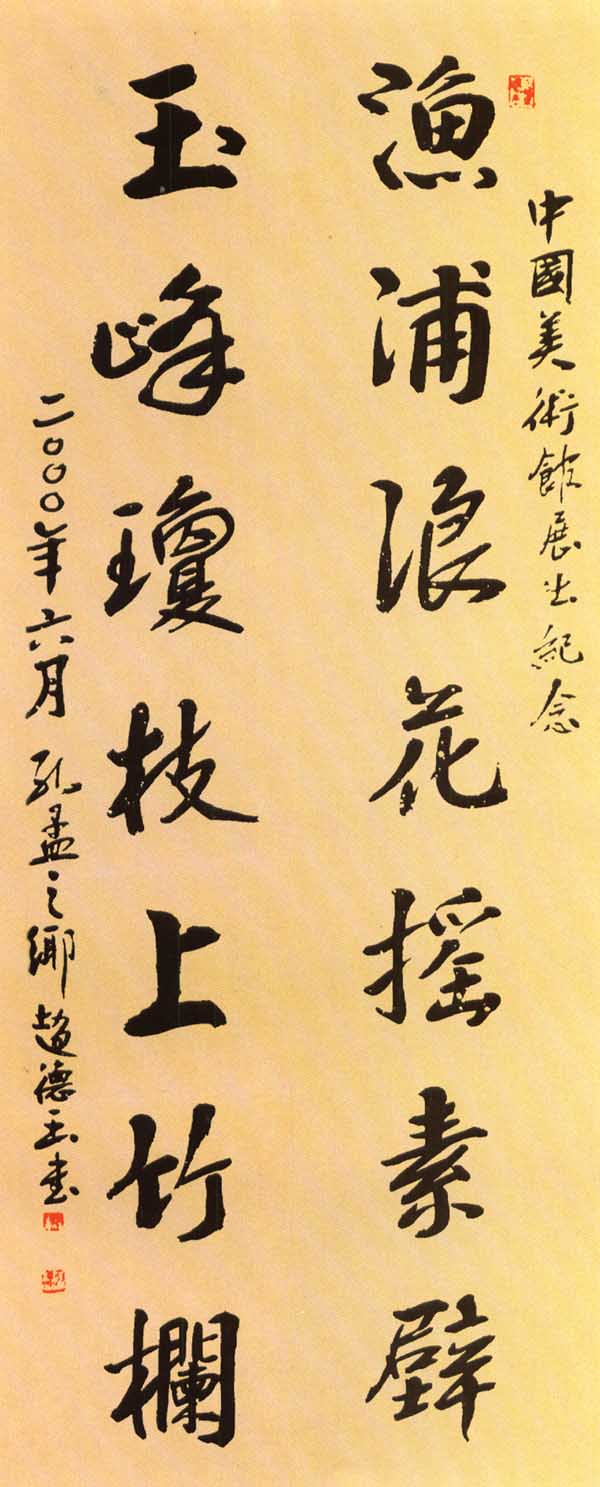 中國美術館展出紀念
漁浦浪花摇素壁
玉峰瓊枝上竹欄
二〇〇〇年六月 孔孟之鄉趙德玉書